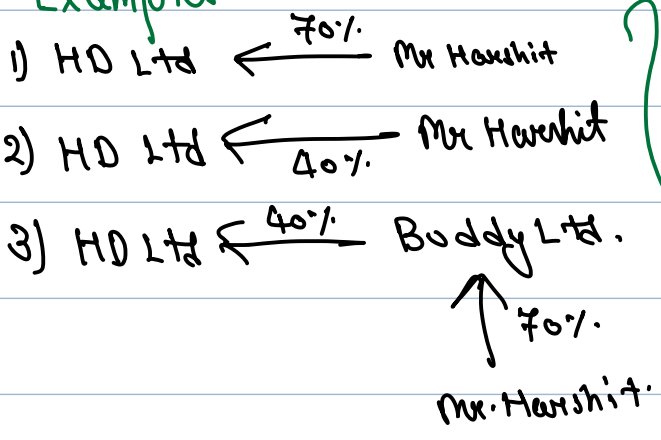 Example
1) HD Ltd ← 70% Mr Harshit
2) HD Ltd ← 40% Mr Harshit
3) HD Ltd ← 40% Buddy Ltd.
↑ 70%.
Mr. Harshit.